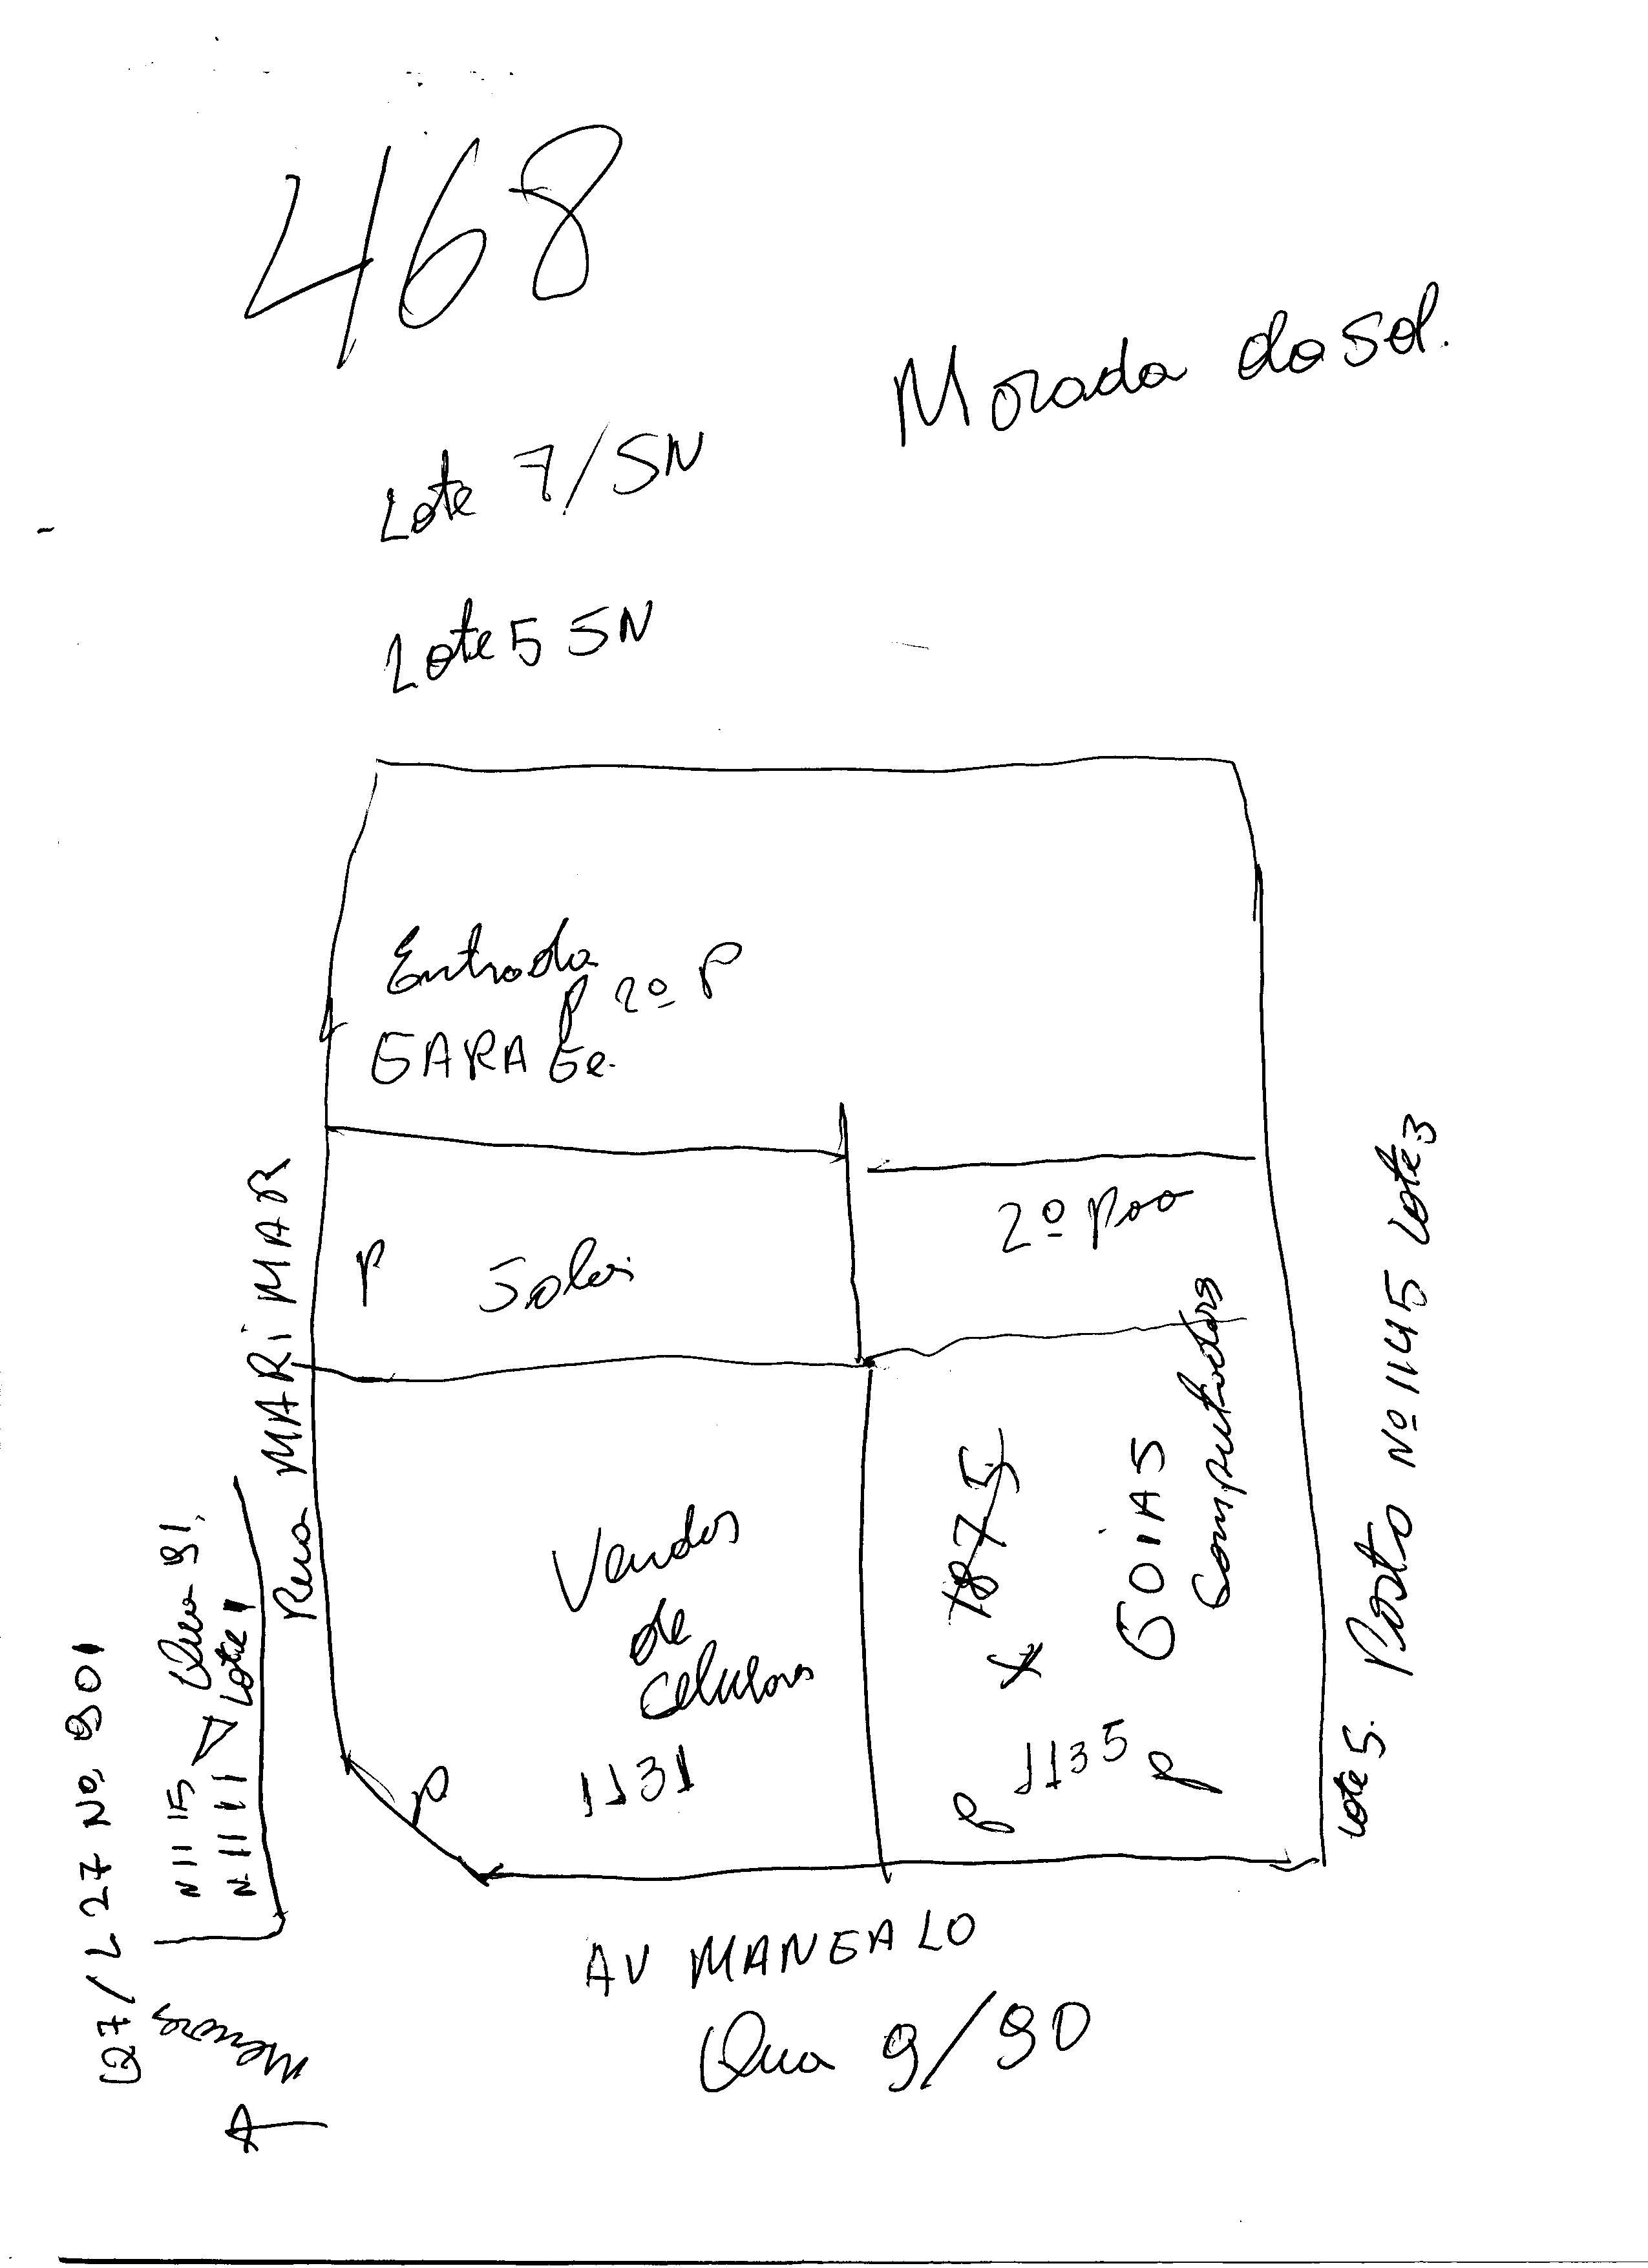 468
Morada do Sol.
Lote 7/SN
Lote 5 SN
Entrada
P 2º P
GARAGe.
P Salas
2º Piso
Rua MARiMAR
Vendas
de
Celulares
1131
P
1875
X
GOiAS
Computadores
P 1135 P
Posto Nº 1145 Lote 3
Lote 5.
N 1115 Qua 91.
N 1111 Lote 1
Q27/L 27 Nº. 901
AV MANGALO
Qua 9/90